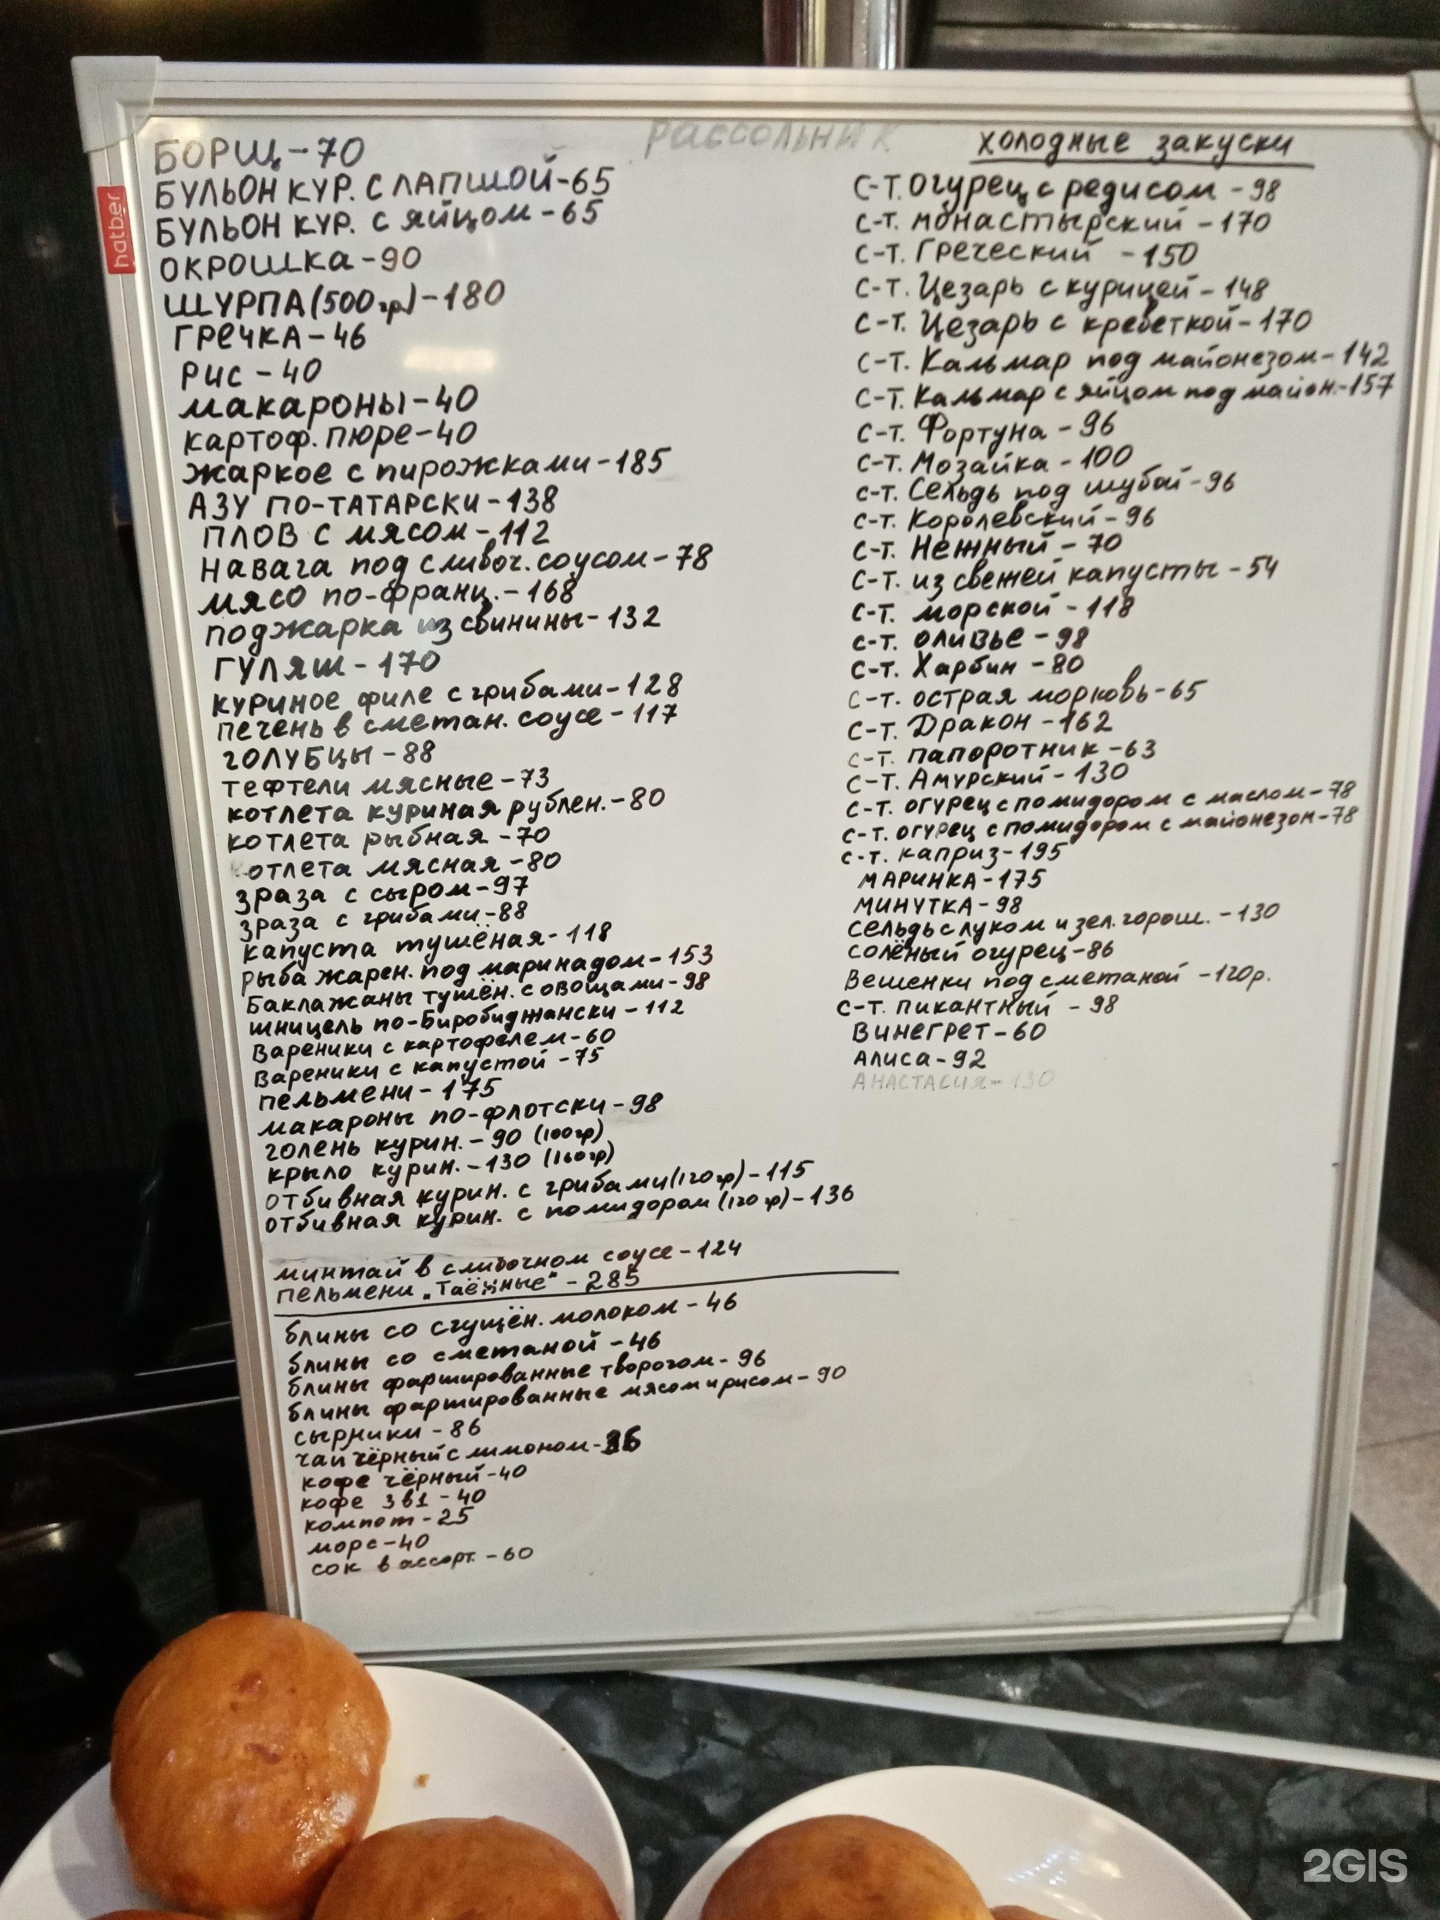 рассольник
БОРЩ-70
БУЛЬОН КУР. С ЛАПШОЙ-65
БУЛЬОН КУР. с яйцом-65
ОКРОШКА-90
ШУРПА(500гр)-180
ГРЕЧКА-46
РИС-40
макароны-40
картоф. пюре-40
жаркое с пирожками-185
АЗУ ПО-ТАТАРСКИ-138
ПЛОВ с мясом-112
навага под сливоч. соусом-78
мясо по-франц.-168
поджарка из свинины-132
ГУЛЯШ-170
куриное филе с грибами-128
печень в сметан. соусе-117
ГОЛУБЦЫ-88
тефтели мясные-73
котлета куриная рублен.-80
котлета рыбная-70
котлета мясная-80
зраза с сыром-97
зраза с грибами-88
капуста тушёная-118
рыба жарен. под маринадом-153
Баклажаны тушён. с овощами-98
шницель по-Биробиджански-112
Вареники с картофелем-60
Вареники с капустой-75
пельмени-175
макароны по-флотски-98
голень курин.-90 (100гр)
крыло курин.-130 (160гр)
отбивная курин. с грибами(120гр)-115
отбивная курин. с помидором(120гр)-136
минтай в сливочном соусе-124
пельмени „Таёжные"-285
блины со сгущён. молоком-46
блины со сметаной-46
блины фаршированные творогом-96
блины фаршированные мясом и рисом-90
сырники-86
чай чёрный с лимоном-
кофе чёрный-40
кофе 3в1-40
компот-25
морс-40
сок в ассорт.-60
холодные закуски
с-т. огурец с редисом-98
с-т. монастырский-170
с-т. Греческий-150
с-т. Цезарь с курицей-148
с-т. Цезарь с креветкой-170
с-т. Кальмар под майонезом-142
с-т. Кальмар с яйцом под майон.-157
с-т. Фортуна-96
с-т. Мозайка-100
с-т. Сельдь под шубой-96
с-т. Королевский-96
с-т. Нежный-70
с-т. из свежей капусты-54
с-т. морской-118
с-т. оливье-98
с-т. Харбин-80
с-т. острая морковь-65
с-т. Дракон-162
с-т. папоротник-63
с-т. Амурский-130
с-т. огурец с помидором с маслом-78
с-т. огурец с помидором с майонезом-78
с-т. каприз-195
МАРИНКА-175
МИНУТКА-98
сельдь с луком и зел. горош.-130
солёный огурец-86
Вешенки под сметаной-120р.
с-т. пикантный-98
ВИНЕГРЕТ-60
АЛИСА-92
АНАСТАСИЯ-130
hatber
2GIS